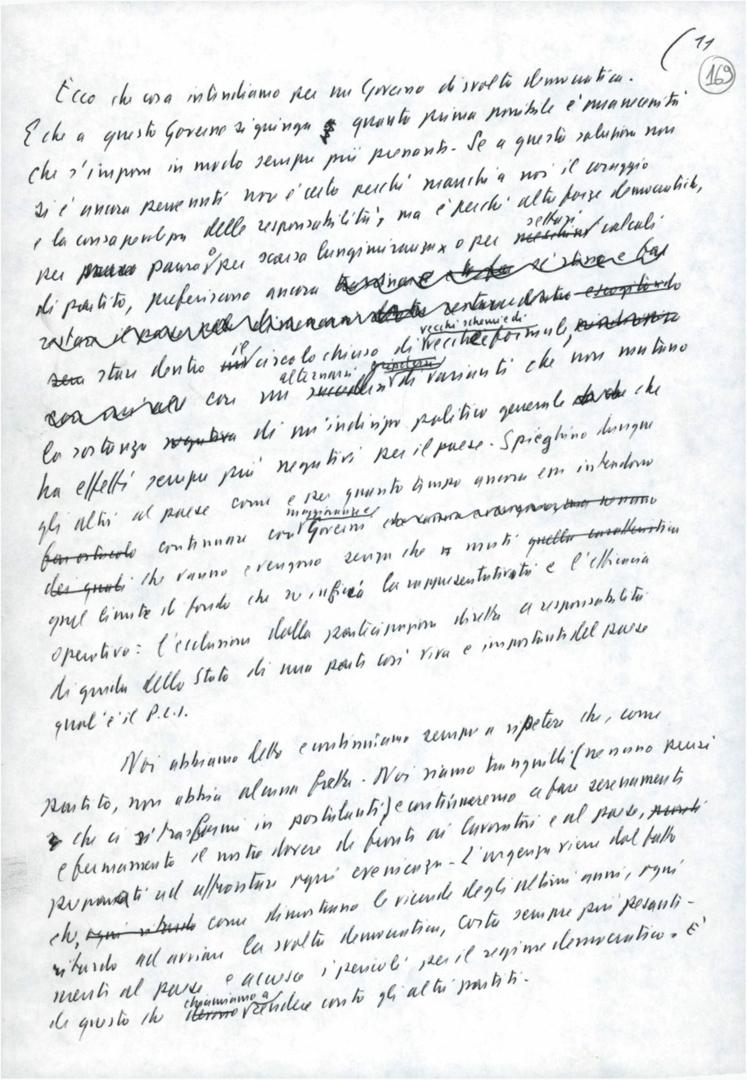 11
169
Ecco che cosa intendiamo per un Governo di svolta democratica.
E che a questo Governo si giunga quanto prima possibile è una necessità
che s'impone in modo sempre più pressante. Se a questa soluzione non
si è ancora pervenuti non è certo perché manchi a noi il coraggio
e la consapevolezza delle responsabilità, ma è perché altre forze democratiche,
per paura o per scarsa lungimiranza o per settari calcoli
di partito, preferiscono ancora
restare dentro
vecchi schemi e di
stare dentro il circolo chiuso di vecchie formule,
alternarsi
con un di varianti che non mutano
la sostanza negativa di un'indirizzo politico generale che
ha effetti sempre più negativi per il paese. Spieghino dunque
gli altri al paese come e per quanto tempo ancora essi intendono
maggioranze e
continuare con Governi
dei quali che vanno e vengono senza che si muti quella caratteristica
quel limite di fondo che ne inficia la rappresentatività e l'efficacia
operativa: l'esclusione dalla partecipazione diretta a responsabilità
di guida dello Stato di una parte così viva e importante del paese
qual'è il P.C.I.
Noi abbiamo detto e continuiamo sempre a ripetere che, come
partito, non abbia alcuna fretta. Noi siamo tranquilli (nessuno pensi
che ci si trasformi in postulanti) e continueremo a fare serenamente
e fermamente il nostro dovere di fronte ai lavoratori e al paese,
preparati ad affrontare ogni evenienza. L'urgenza viene dal fatto
che, ogni ritardo come dimostrano le vicende degli ultimi anni, ogni
ritardo ad avviare la svolta democratica, costa sempre più pesante-
mente al paese e accresce i pericoli per il regime democratico. È
chiamiamo a
di questo che devono rendere conto gli altri partiti.